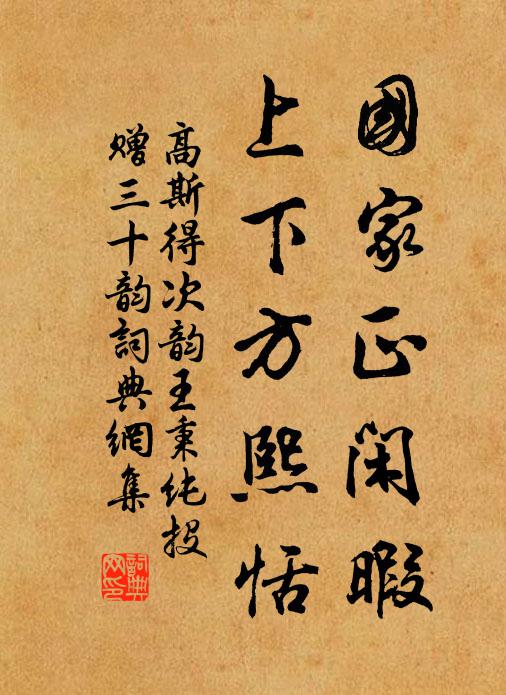 國家正闲暇
上下方熙恬
高斯得次韵王秉纯投
赠三十韵詞典網集
詞典
网印